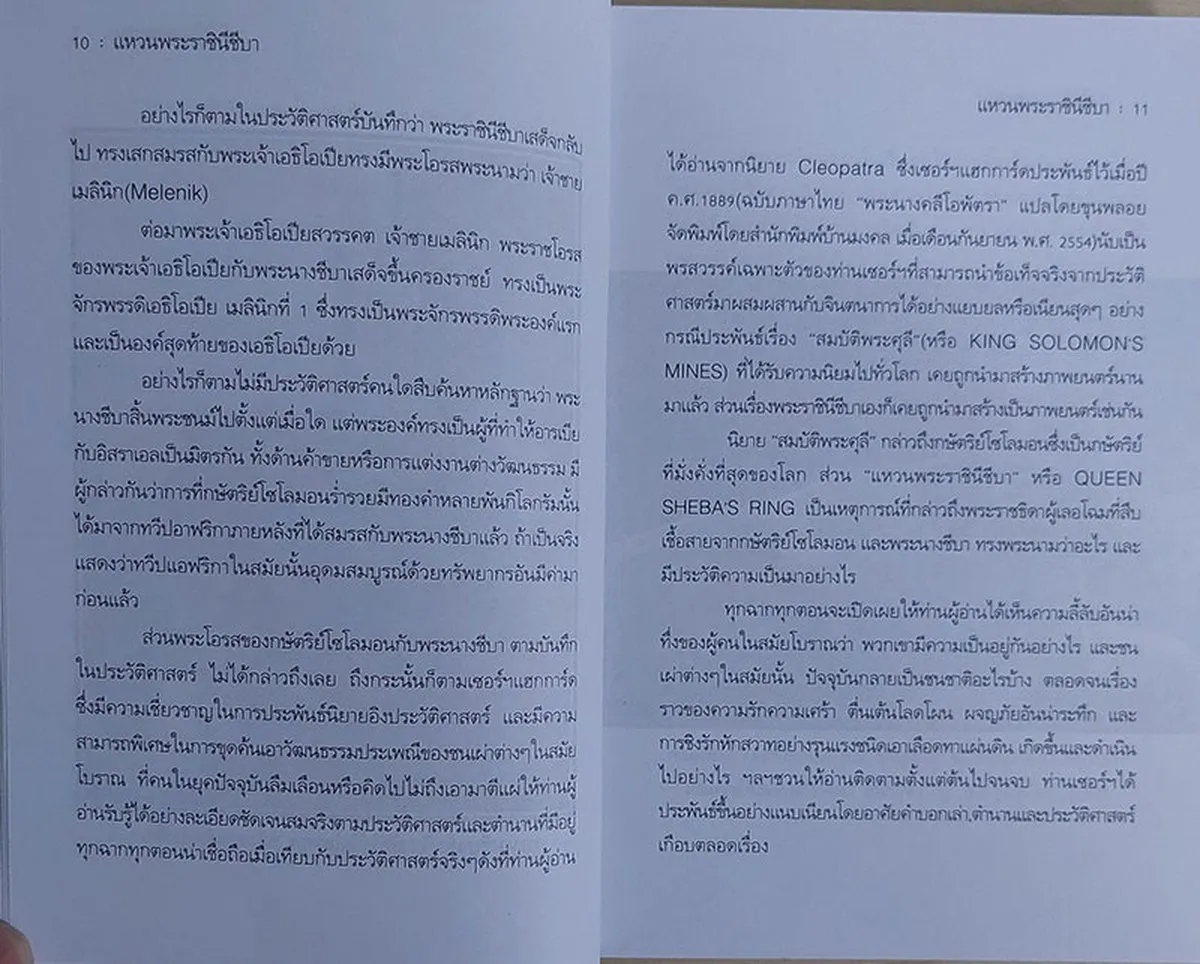 10 : แหวนพระราชินีชีบา
อย่างไรก็ตามในประวัติศาสตร์บันทึกว่า พระราชินีชีบาเสด็จกลับ
ไป ทรงเสกสมรสกับพระเจ้าเอธิโอเปียทรงมีพระโอรสพระนามว่า เจ้าชาย
เมลินิก(Melenik)
ต่อมาพระเจ้าเอธิโอเปียสวรรคต เจ้าชายเมลินิก พระราชโอรส
ของพระเจ้าเอธิโอเปียกับพระนางชีบาเสด็จขึ้นครองราชย์ ทรงเป็นพระ
จักรพรรดิเอธิโอเปีย เมลินิกที่ 1 ซึ่งทรงเป็นพระจักรพรรดิพระองค์แรก
และเป็นองค์สุดท้ายของเอธิโอเปียด้วย
อย่างไรก็ตามไม่มีประวัติศาสตร์คนใดสืบค้นหาหลักฐานว่า พระ
นางชีบาสิ้นพระชนม์ไปตั้งแต่เมื่อใด แต่พระองค์ทรงเป็นผู้ที่ทำให้อารเบีย
กับอิสราเอลเป็นมิตรกัน ทั้งด้านค้าขายหรือการแต่งงานต่างวัฒนธรรม มี
ผู้กล่าวกันว่าการที่กษัตริย์โซโลมอนร่ำรวยมีทองคำหลายพันกิโลกรัมนั้น
ได้มาจากทวีปอาฟริกาภายหลังที่ได้สมรสกับพระนางชีบาแล้ว ถ้าเป็นจริง
แสดงว่าทวีปแอฟริกาในสมัยนั้นอุดมสมบูรณ์ด้วยทรัพยากรอันมีค่ามา
ก่อนแล้ว
ส่วนพระโอรสของกษัตริย์โซโลมอนกับพระนางชีบา ตามบันทึก
ในประวัติศาสตร์ ไม่ได้กล่าวถึงเลย ถึงกระนั้นก็ตามเซอร์ฯแฮกการ์ด
ซึ่งมีความเชี่ยวชาญในการประพันธ์นิยายอิงประวัติศาสตร์ และมีความ
สามารถพิเศษในการขุดค้นเอาวัฒนธรรมประเพณีของชนเผ่าต่างๆในสมัย
โบราณ ที่คนในยุคปัจจุบันลืมเลือนหรือคิดไปไม่ถึงเอามาตีแผ่ให้ท่านผู้
อ่านรับรู้ได้อย่างละเอียดชัดเจนสมจริงตามประวัติศาสตร์และตำนานที่มีอยู่
ทุกฉากทุกตอนน่าเชื่อถือเมื่อเทียบกับประวัติศาสตร์จริงๆดังที่ท่านผู้อ่าน
แหวนพระราชินีชีบา : 11
ได้อ่านจากนิยาย Cleopatra ซึ่งเซอร์ฯแฮกการ์ดประพันธ์ไว้เมื่อปี
ค.ศ.1889(ฉบับภาษาไทย "พระนางคลีโอพัตรา" แปลโดยขุนพลอย
จัดพิมพ์โดยสำนักพิมพ์บ้านมงคล เมื่อเดือนกันยายน พ.ศ. 2554)นับเป็น
พรสวรรค์เฉพาะตัวของท่านเซอร์ฯที่สามารถนำข้อเท็จจริงจากประวัติ
ศาสตร์มาผสมผสานกับจินตนาการได้อย่างแยบยลหรือเนียนสุดๆ อย่าง
กรณีประพันธ์เรื่อง "สมบัติพระศุลี"(หรือ KING SOLOMON'S
MINES) ที่ได้รับความนิยมไปทั่วโลก เคยถูกนำมาสร้างภาพยนตร์นาน
มาแล้ว ส่วนเรื่องพระราชินีชีบาเองก็เคยถูกนำมาสร้างเป็นภาพยนตร์เช่นกัน
นิยาย "สมบัติพระศุลี" กล่าวถึงกษัตริย์โซโลมอนซึ่งเป็นกษัตริย์
ที่มั่งคั่งที่สุดของโลก ส่วน "แหวนพระราชินีชีบา" หรือ QUEEN
SHEBA'S RING เป็นเหตุการณ์ที่กล่าวถึงพระราชธิดาผู้เลอโฉมที่สืบ
เชื้อสายจากกษัตริย์โซโลมอน และพระนางชีบา ทรงพระนามว่าอะไร และ
มีประวัติความเป็นมาอย่างไร
ทุกฉากทุกตอนจะเปิดเผยให้ท่านผู้อ่านได้เห็นความลี้ลับอันน่า
ทึ่งของผู้คนในสมัยโบราณว่า พวกเขามีความเป็นอยู่กันอย่างไร และชน
เผ่าต่างๆในสมัยนั้น ปัจจุบันกลายเป็นชนชาติอะไรบ้าง ตลอดจนเรื่อง
ราวของความรักความเศร้า ตื่นเต้นโลดโผน ผจญภัยอันน่าระทึก และ
การชิงรักหักสวาทอย่างรุนแรงชนิดเอาเลือดทาแผ่นดิน เกิดขึ้นและดำเนิน
ไปอย่างไร ฯลฯชวนให้อ่านติดตามตั้งแต่ต้นไปจนจบ ท่านเซอร์ฯได้
ประพันธ์ขึ้นอย่างแนบเนียนโดยอาศัยคำบอกเล่า,ตำนานและประวัติศาสตร์
เกือบตลอดเรื่อง